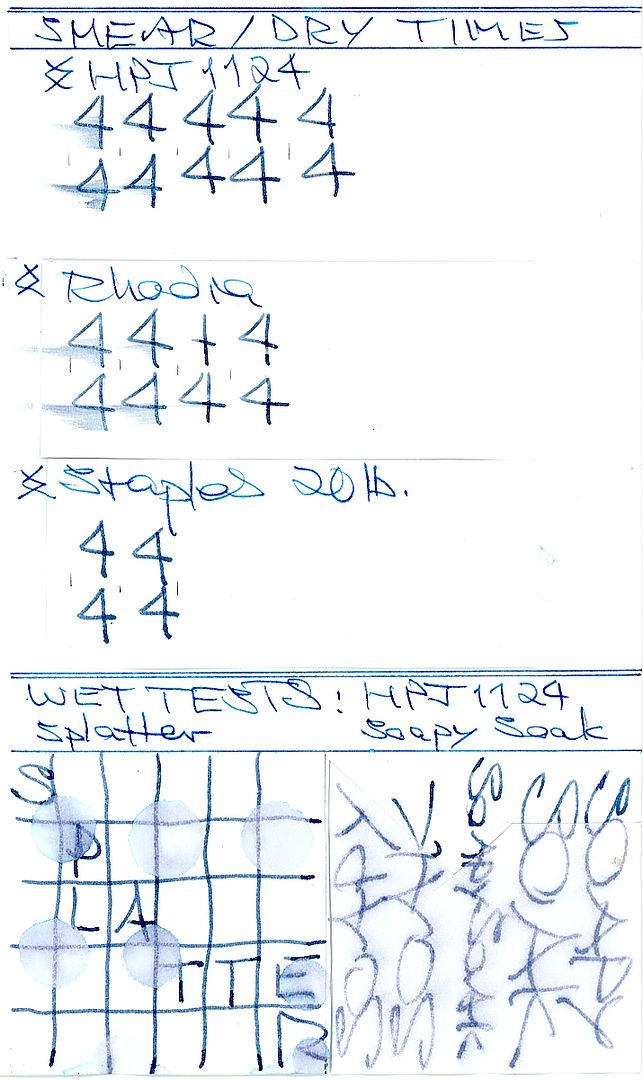 SMEAR/DRY TIMES
HPJ1124
4 4 4 4 4
4 4 4 4 4
Rhodia
4 4 + 4
4 4 4 4
Staples 20 lb.
4 4
4 4
WET TESTS: HPJ1124
Splatter Soapy Soak
S
P
L A
T T E
R
SOAPY
SOAK
SOAPY SOAK